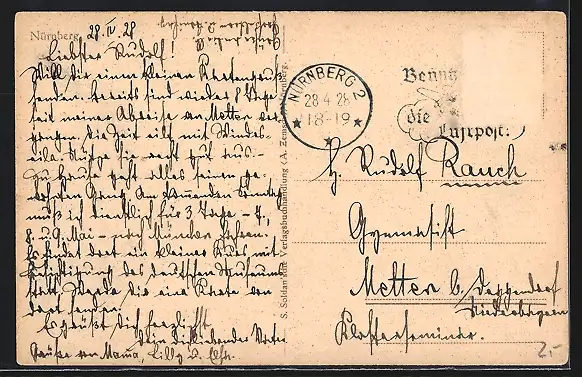 Nürnberg 28. IV. 28
Liebster Rudolf!
Will dir einen kleinen Kartengruß
senden. Bereits sind wieder 8 Tage
seit meiner Abreise von Metten ver-
gangen, die Zeit eilt mit Windes-
eile. Nütze sie recht gut aus. -
Zu Hause geht alles seinen ge-
wohnten Gang. Am kommenden Sonntag
muß ich dienstlich für 3 Tage - 7.,
8. u. 9. Mai - nach München fahren.
Es findet dort ein kleiner Kurs mit
Besichtigung des deutschen Museums
statt. Werde dir eine Karte von
dort senden.
Es grüßt dich herzlichst
Dein dich liebender Vater
Grüße von Mama, Lilly u.
S. Soldan'sche Verlagsbuchhandlung (A. Zemsch) Nürnberg.
NÜRNBERG 2
28.4.28
18-19
Benutzt
die
Luftpost:
H. Rudolf Rauch
Gymnasist
Metten b. Deggendorf
Niederbayern
Klosterseminar.
2,-